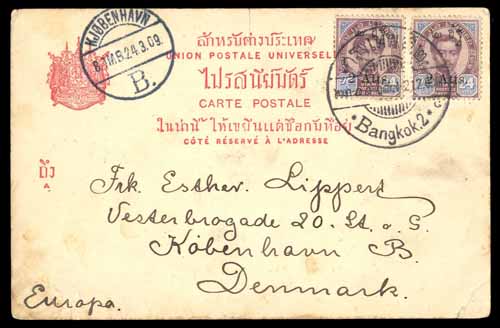 KJØBENHAVN
24.3.09.
B.
สำหรับต่างประเทศ
UNION POSTALE UNIVERSELLE
ไปรสนิยบัตร์
CARTE POSTALE
ในน่านี้ ให้เขียนแต่ชื่อกับที่อยู่
CÔTÉ RÉSERVÉ À L'ADRESSE
2 Atts. 2 Atts.
24 24
Bangkok 2
ถึง
Frk. Esther Lippert
Vesterbrogade 20. St. o. G.
København B.
Denmark.
Europa.